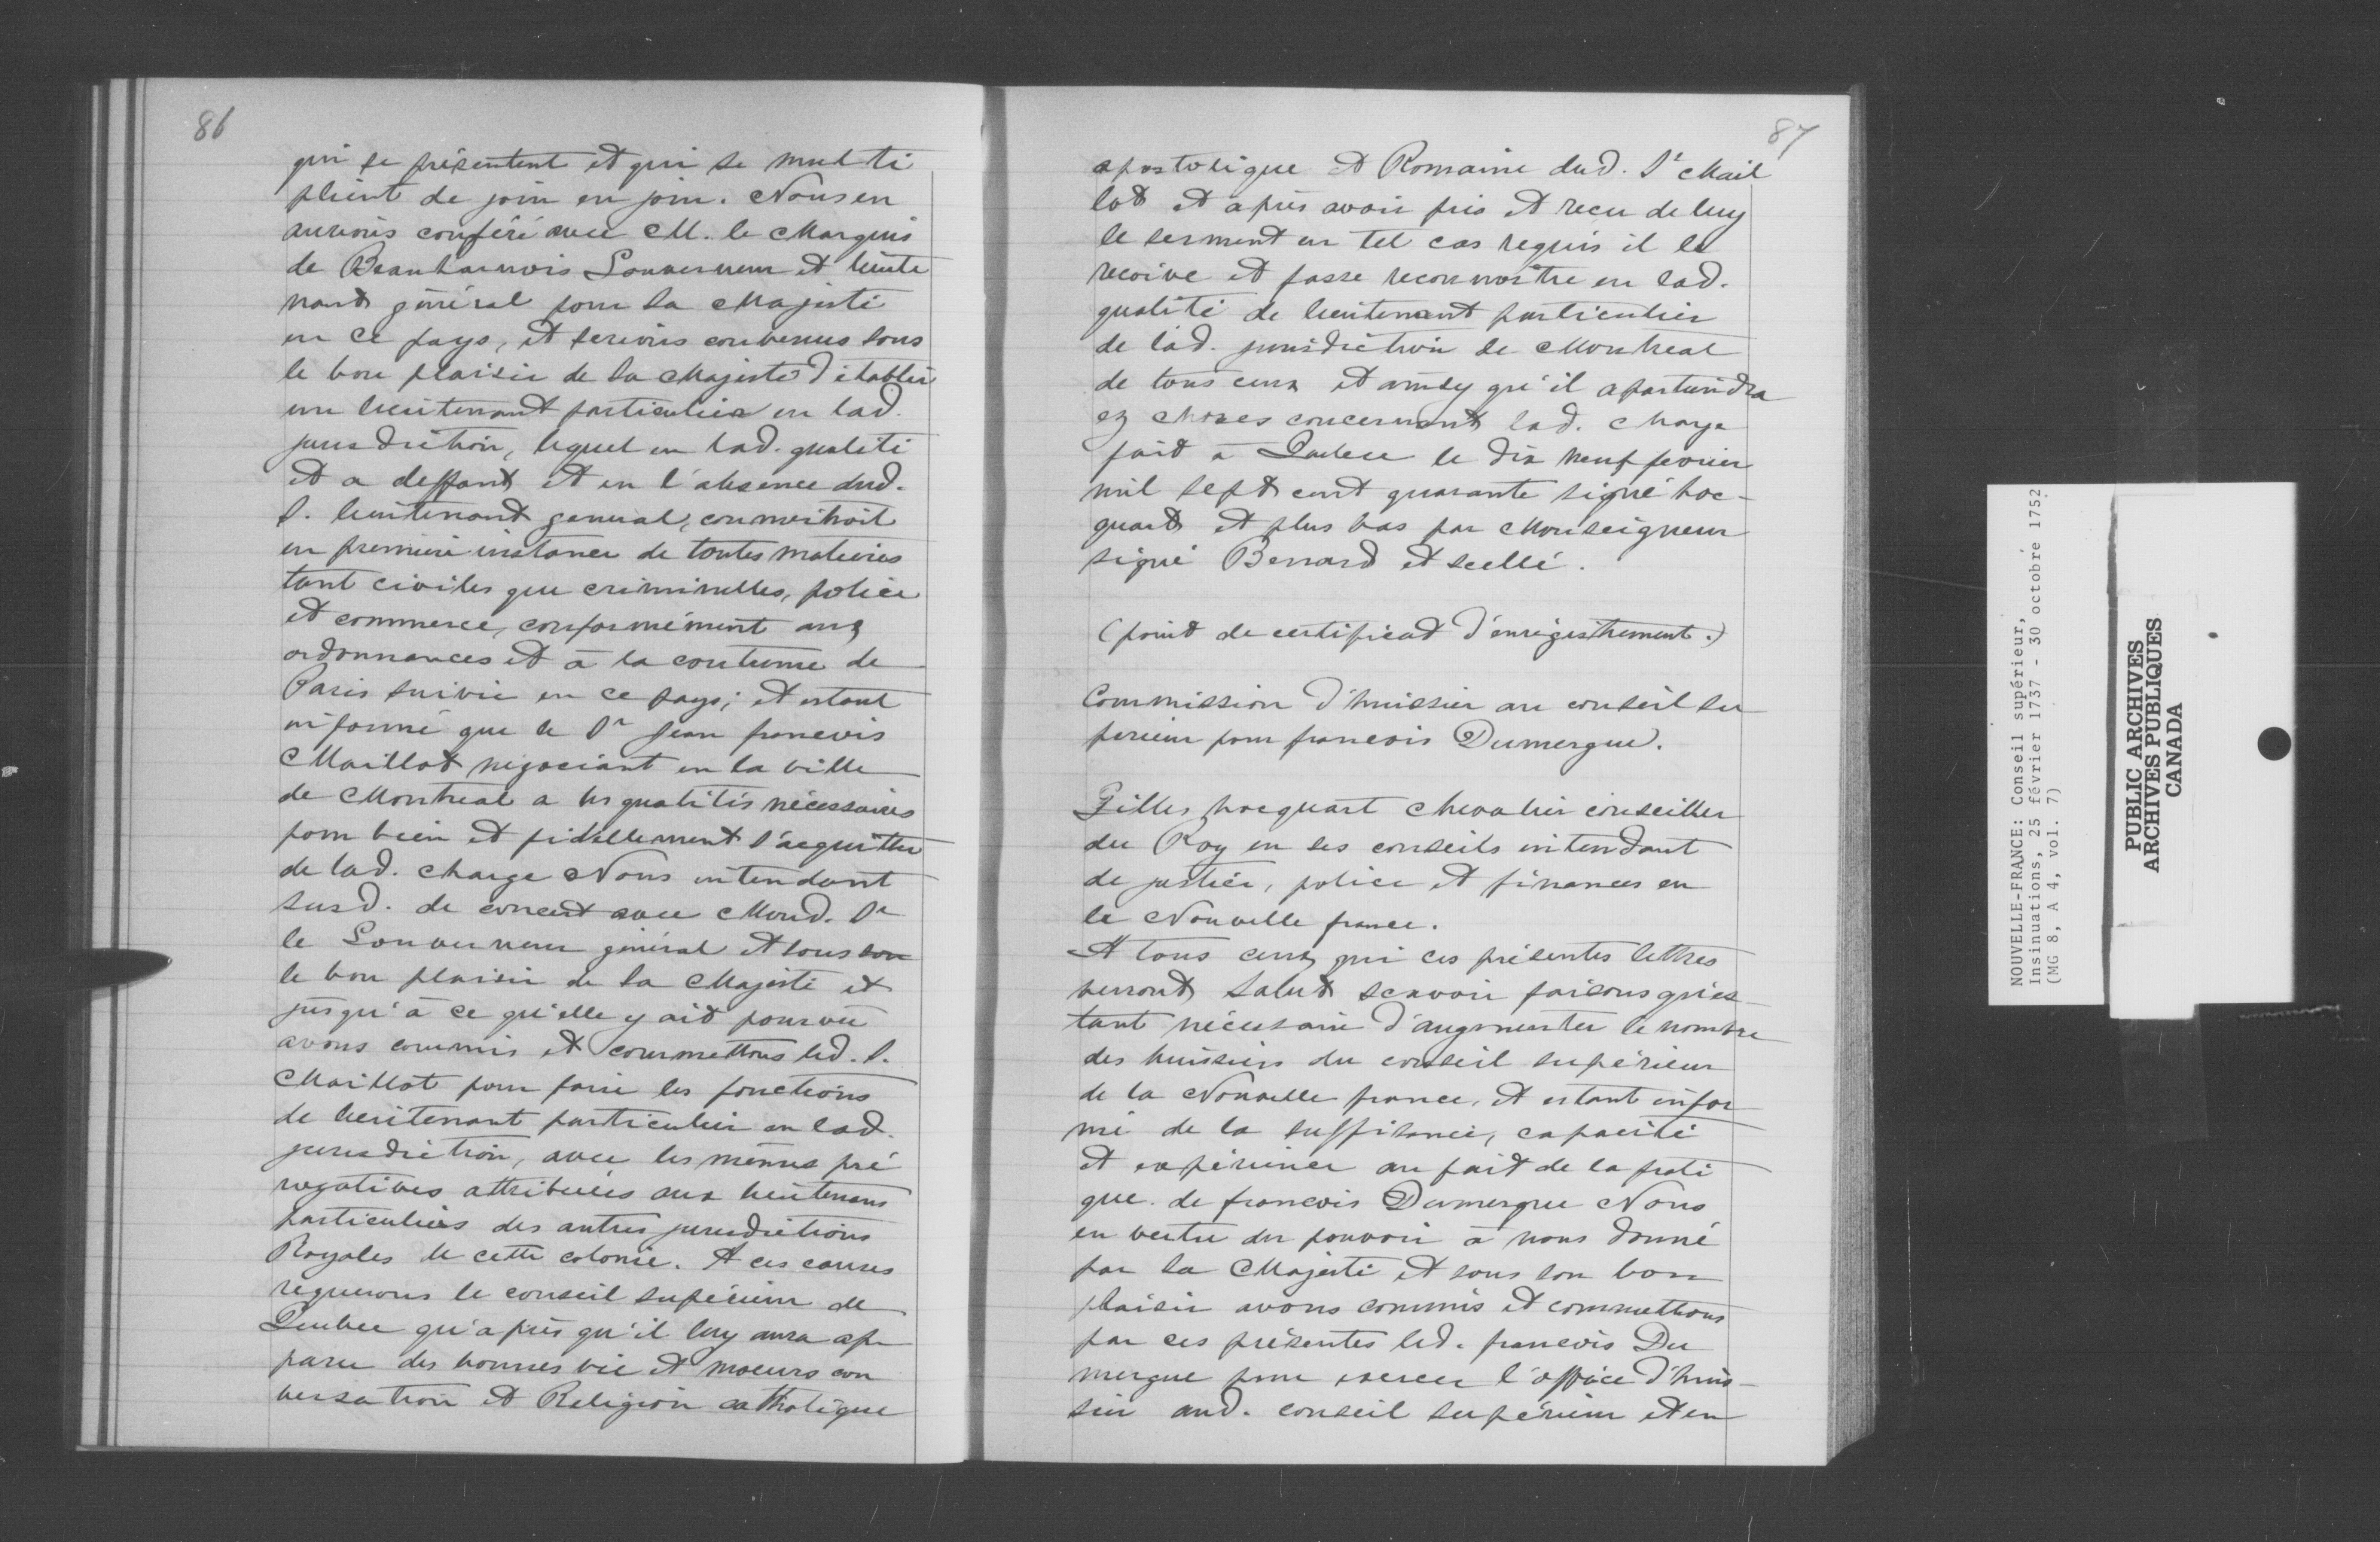 86
qui se présentent et qui se multi
plient de jour en jour. Nous en
aurions conféré avec M. le Marquis
de Beauharnois Gouverneur et lieute
nant général pour Sa Majesté
en ce pays, et serions convenus sous
le bon plaisir de Sa Majesté d'établir
un lieutenant particulier en lad.
jurisdiction, lequel en lad. qualité
et a deffaut et en l'absence dud.
S. lieutenant general, connoitroit
en premiere instance de toutes matieres
tant civiles que criminelles, police
et commerce, conformément aux
ordonnances et à la coutume de
Paris suivie en ce pays; et estant
informé que le Sr Jean francois
Maillot negociant en la ville
de Montreal a les qualités nécessaires
pour bien et fidellement s'acquitter
de lad. charge Nous intendant
susd. de concert avec Mond. Sr
le Gouverneur général et sous son
le bon plaisir de Sa Majesté et
jusqu'à ce qu'elle y ait pourvu
avons commis et commettons led. S.
Maillot pour faire les fonctions
de lieutenant particulier en lad.
jurisdiction, avec les mêmes pré
rogatives attribuées aux lieutenans
particuliers des autres jurisdictions
Royales de cette colonie. A ces causes
requerons le conseil supérieur de
Quebec qu'après qu'il luy aura ap
paru des bonnes vie et moeurs con
versation et Religion catholique
87
apostolique et Romaine dud. Sr Mail
lot et après avoir pris et recu de luy
le serment en tel cas requis il le
recoive et fasse reconnoître en lad.
qualité de lieutenant particulier
de lad. jurisdiction de Montreal
de tous ceux et ainsy qu'il apartiendra
ez choses concernant lad. charge
fait à Quebec le dix neuf fevrier
mil sept cent quarante signé hoc-
quart et plus bas par Monseigneur
signé Benard et scellé.
(point de certificat d'enregistrement.)
Commission d'huissier au conseil su
perieur pour francois Dumergue.
Gilles hocquart chevalier conseiller
du Roy en ses conseils intendant
de justice, police et finances en
la Nouvelle france.
A tous ceux qui ces présentes lettres
verront Salut scavoir faisons qu'es-
tant nécessaire d'augmenter le nombre
des huissiers du conseil supérieur
de la Nouvelle france, et estant infor
mé de la suffisance, capacité
et expérience au fait de la prati
que de francois Dumergue Nous
en vertu du pouvoir à nous donné
par Sa Majesté et sous son bon
plaisir avons commis et commettons
par ces présentes led. francois Du
mergue pour exercer l'office d'huis-
sier aud. conseil supérieur et en
NOUVELLE-FRANCE: Conseil supérieur,
Insinuations, 25 février 1737 - 30 octobre 1752
(MG 8, A 4, vol. 7)
PUBLIC ARCHIVES
ARCHIVES PUBLIQUES
CANADA